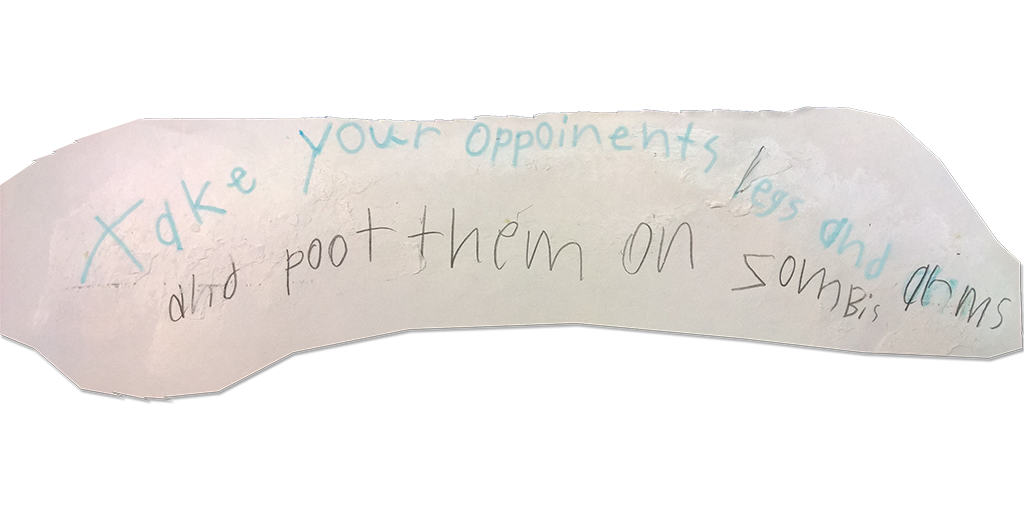 Take your oppoinents legs and arms
and poot them on somBis